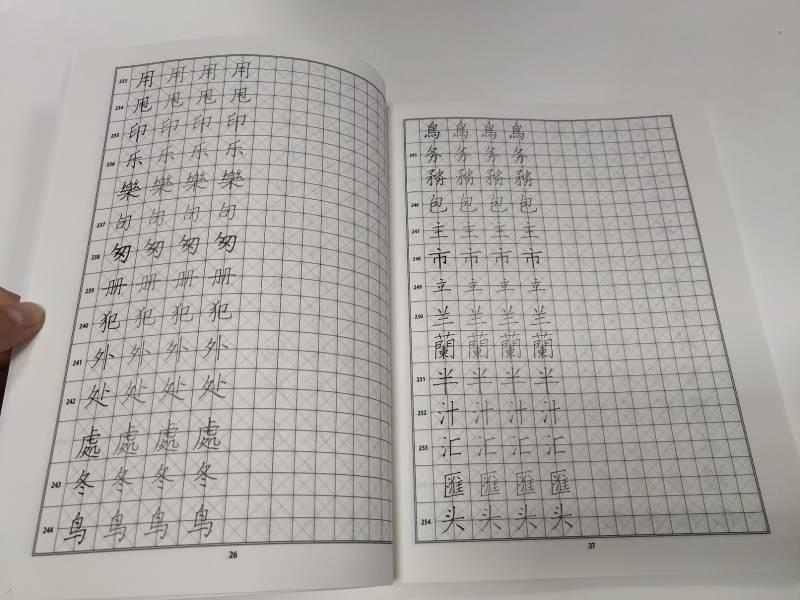 233 用 用 用 用
234 甩 甩 甩 甩
235 印 印 印 印
236 乐 乐 乐 乐
樂 樂 樂 樂
237 句 句 句 句
238 匆 匆 匆 匆
239 册 册 册 册
240 犯 犯 犯 犯
241 外 外 外 外
242 处 处 处 处
處 處 處 處
243 冬 冬 冬 冬
244 鸟 鸟 鸟 鸟
26
鳥 鳥 鳥 鳥
245 务 务 务 务
務 務 務 務
246 包 包 包 包
247 主 主 主 主
248 市 市 市 市
249 立 立 立 立
250 兰 兰 兰 兰
蘭 蘭 蘭 蘭
251 半 半 半 半
252 汁 汁 汁 汁
253 汇 汇 汇 汇
匯 匯 匯 匯
254 头 头 头 头
27